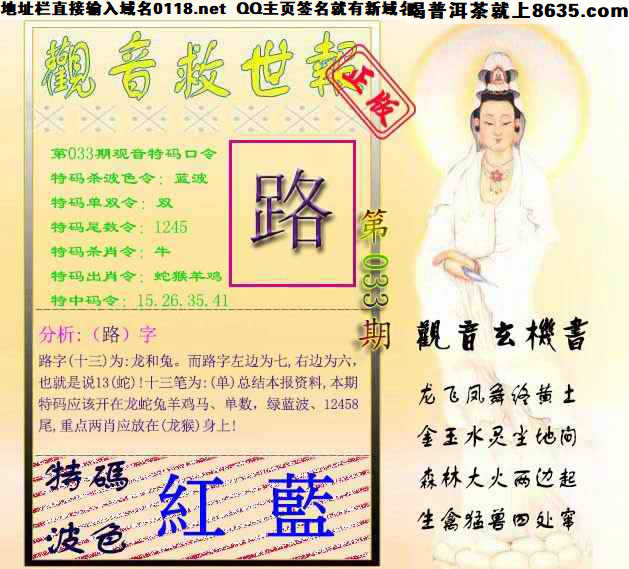 地址栏直接输入域名0118.net QQ主页签名就有新域名
喝普洱茶就上8635.com
觀音救世報
正版
第033期观音特码口令
特码杀波色令：蓝波
特码单双令：双
特码尾数令：1245
特码杀肖令：牛
特码出肖令：蛇猴羊鸡
特中码令：15.26.35.41
路
第033期
分析:（路）字
路字(十三)为:龙和兔。而路字左边为七,右边为六，
也就是说13(蛇)!十三笔为:(单)总结本报资料,本期
特码应该开在龙蛇兔羊鸡马、单数，绿蓝波、12458
尾,重点两肖应放在(龙猴)身上!
特碼
波色
紅藍
觀音玄機書
龙飞凤舞终黄土
金玉水灵尘地间
森林大火两边起
生禽猛兽四处窜